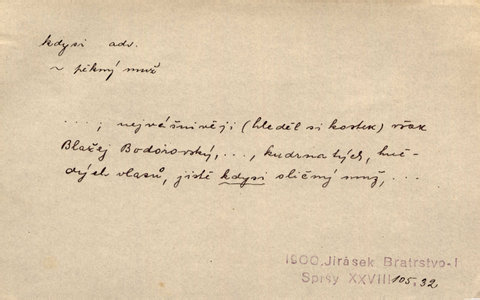 kdysi adv.
~ pěkný muž
..., nejvášnivěji (hleděl si kostek) však
Blažej Bodórovský, ..., kudrnatých, hně-
dých vlasů, jistě kdysi sličný muž, ...
1900, Jirásek Bratrstvo-I
Spisy XXVIII 105.32